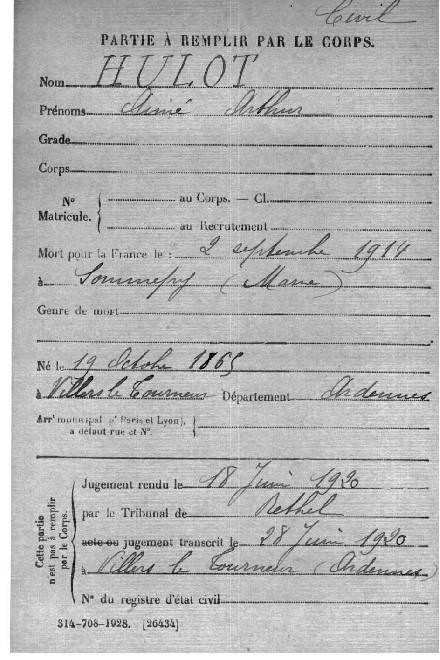 Civil
PARTIE À REMPLIR PAR LE CORPS.
Nom HULOT
Prénoms Aimé Arthur
Grade
Corps
N° Matricule. { au Corps. — Cl.
au Recrutement
Mort pour la France le : 2 septembre 1914
à Sommepy (Marne)
Genre de mort
Né le 19 Octobre 1865
à Villers le Tourneur Département Ardennes
Arrt municipal (pr Paris et Lyon), à défaut rue et N°. {
Cette partie n'est pas à remplir par le Corps.
Jugement rendu le 18 Juin 1920
par le Tribunal de Rethel
acte ou jugement transcrit le 28 Juin 1920
à Villers le Tourneur (Ardennes)
N° du registre d'état civil
314-708-1928. [26434]